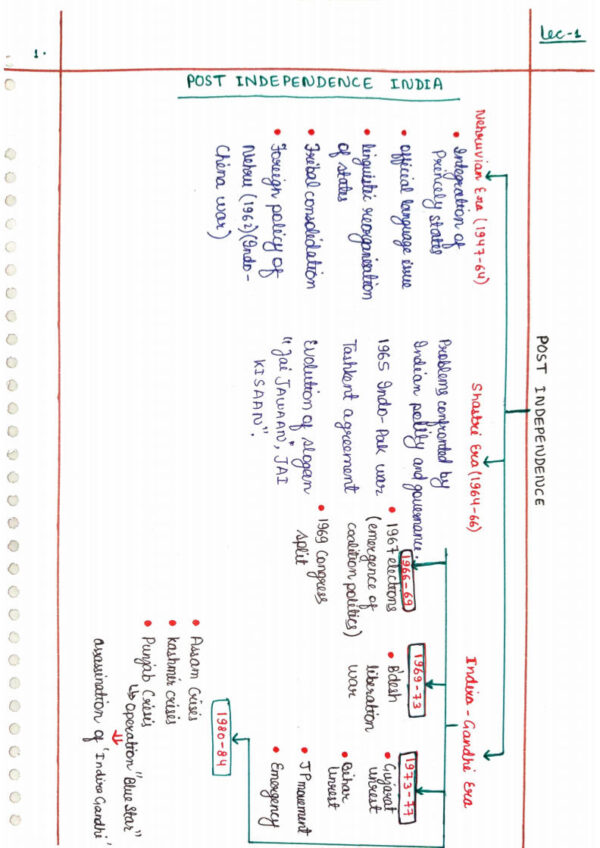 Lec-1
1.
POST INDEPENDENCE INDIA
POST INDEPENDENCE
Nehruvian Era (1947-64)
• Integration of
Princely states
• official language issue
• linguistic reorganisation
of states
• Tribal consolidation
• Foreign policy of
Nehru (1962) (Indo-
China war)
Shastri Era (1964-66)
Problems confronted by
Indian polity and governance.
1965 Indo-Pak war
Tashkent agreement
Evolution of slogan
"Jai JAWAAN, JAI
KISAAN".
Indira-Gandhi Era
1966-69
• 1967 elections
(emergence of
coalition politics)
• 1969 Congress
split
1969-73
• B'desh
liberation
war
1973-77
• Gujarat
unrest
• Bihar
Unrest
• JP movement
• Emergency
1980-84
• Assam Crises
• Kashmir crises
• Punjab Crisis
↳ operation "Blue Star"
⇓
assasination of 'Indira Gandhi'